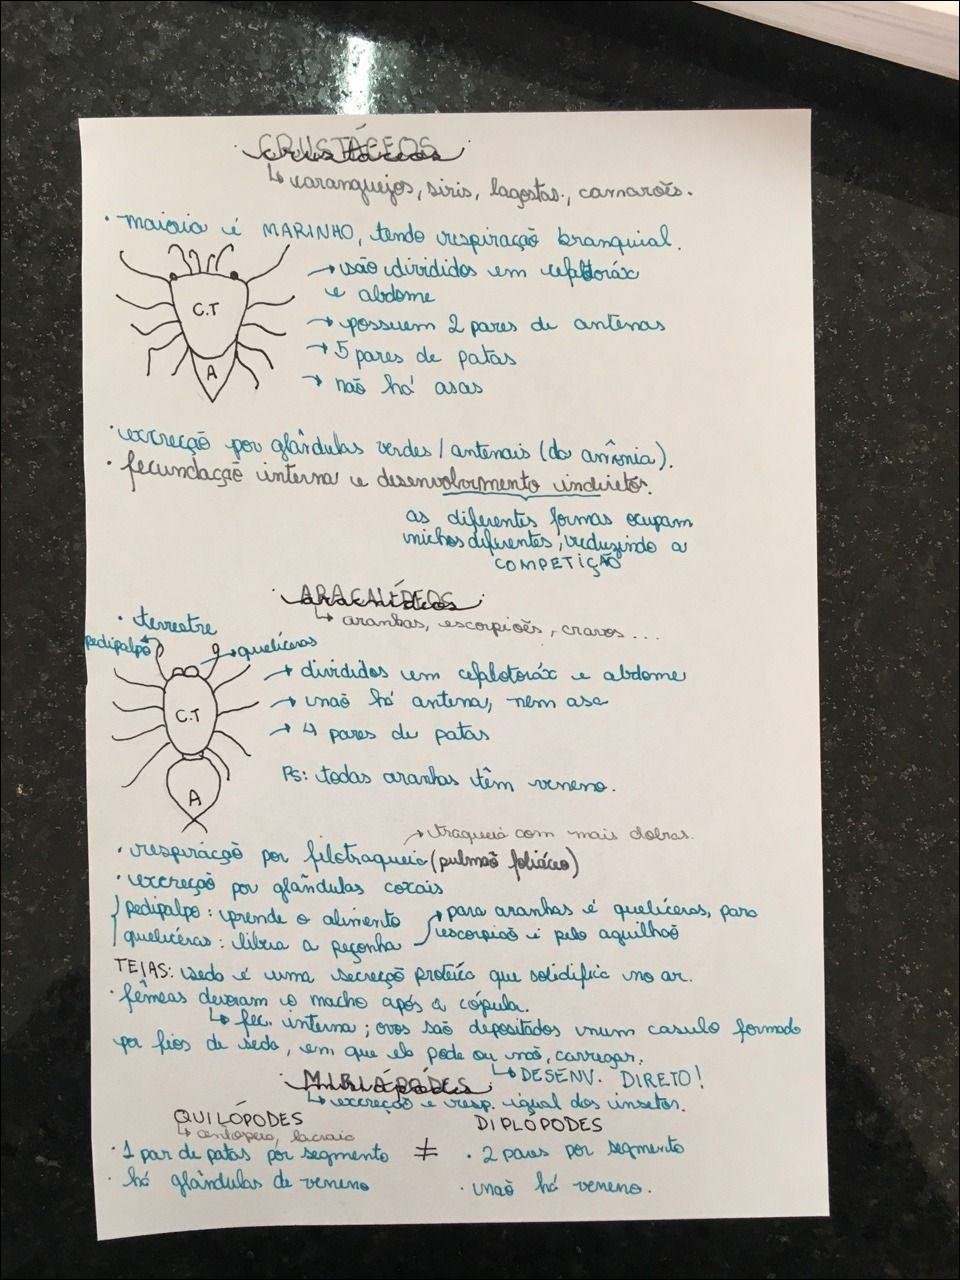 CRUSTÁCEOS
↳ caranguejos, siris, lagostas, camarões.
· maioria é MARINHO, tendo respiração branquial.
→ são divididos em cefalotoráx
e abdome
→ possuem 2 pares de antenas
→ 5 pares de patas
→ não há asas
C.T
A
· excreção por glândulas verdes / antenais (da amônia).
· fecundação interna e desenvolvimento indireto.
as diferentes formas ocupam
nichos diferentes, reduzindo a
COMPETIÇÃO
ARACNÍDEOS
↳ aranhas, escorpiões, cravos...
· terrestre
pedipalpo
→ quelíceras
→ divididos em cefalotoráx e abdome
→ não há antena, nem asa
→ 4 pares de patas
C.T
A
Ps: todas aranhas têm veneno.
→ traqueia com mais dobras.
· respiração por filotraqueia (pulmão foliáceo)
· excreção por glândulas coxais
pedipalpo: prende o alimento
→ para aranhas é quelíceras, para
quelíceras: libera a peçonha
escorpião é pelo aguilhão
TEIAS: seda é uma secreção protéica que solidifica no ar.
· fêmeas devoram o macho após a cópula.
↳ fec. interna; ovos são depositados num casulo formado
por fios de seda, em que ela pode ou não, carregar.
↳ DESENV. DIRETO!
MIRIÁPODES
↳ excreção e resp. igual dos insetos.
QUILÓPODES
↳ centopeia, lacraia
· 1 par de patas por segmento
· há glândulas de veneno
≠
DIPLÓPODES
· 2 pares por segmento
· não há veneno.